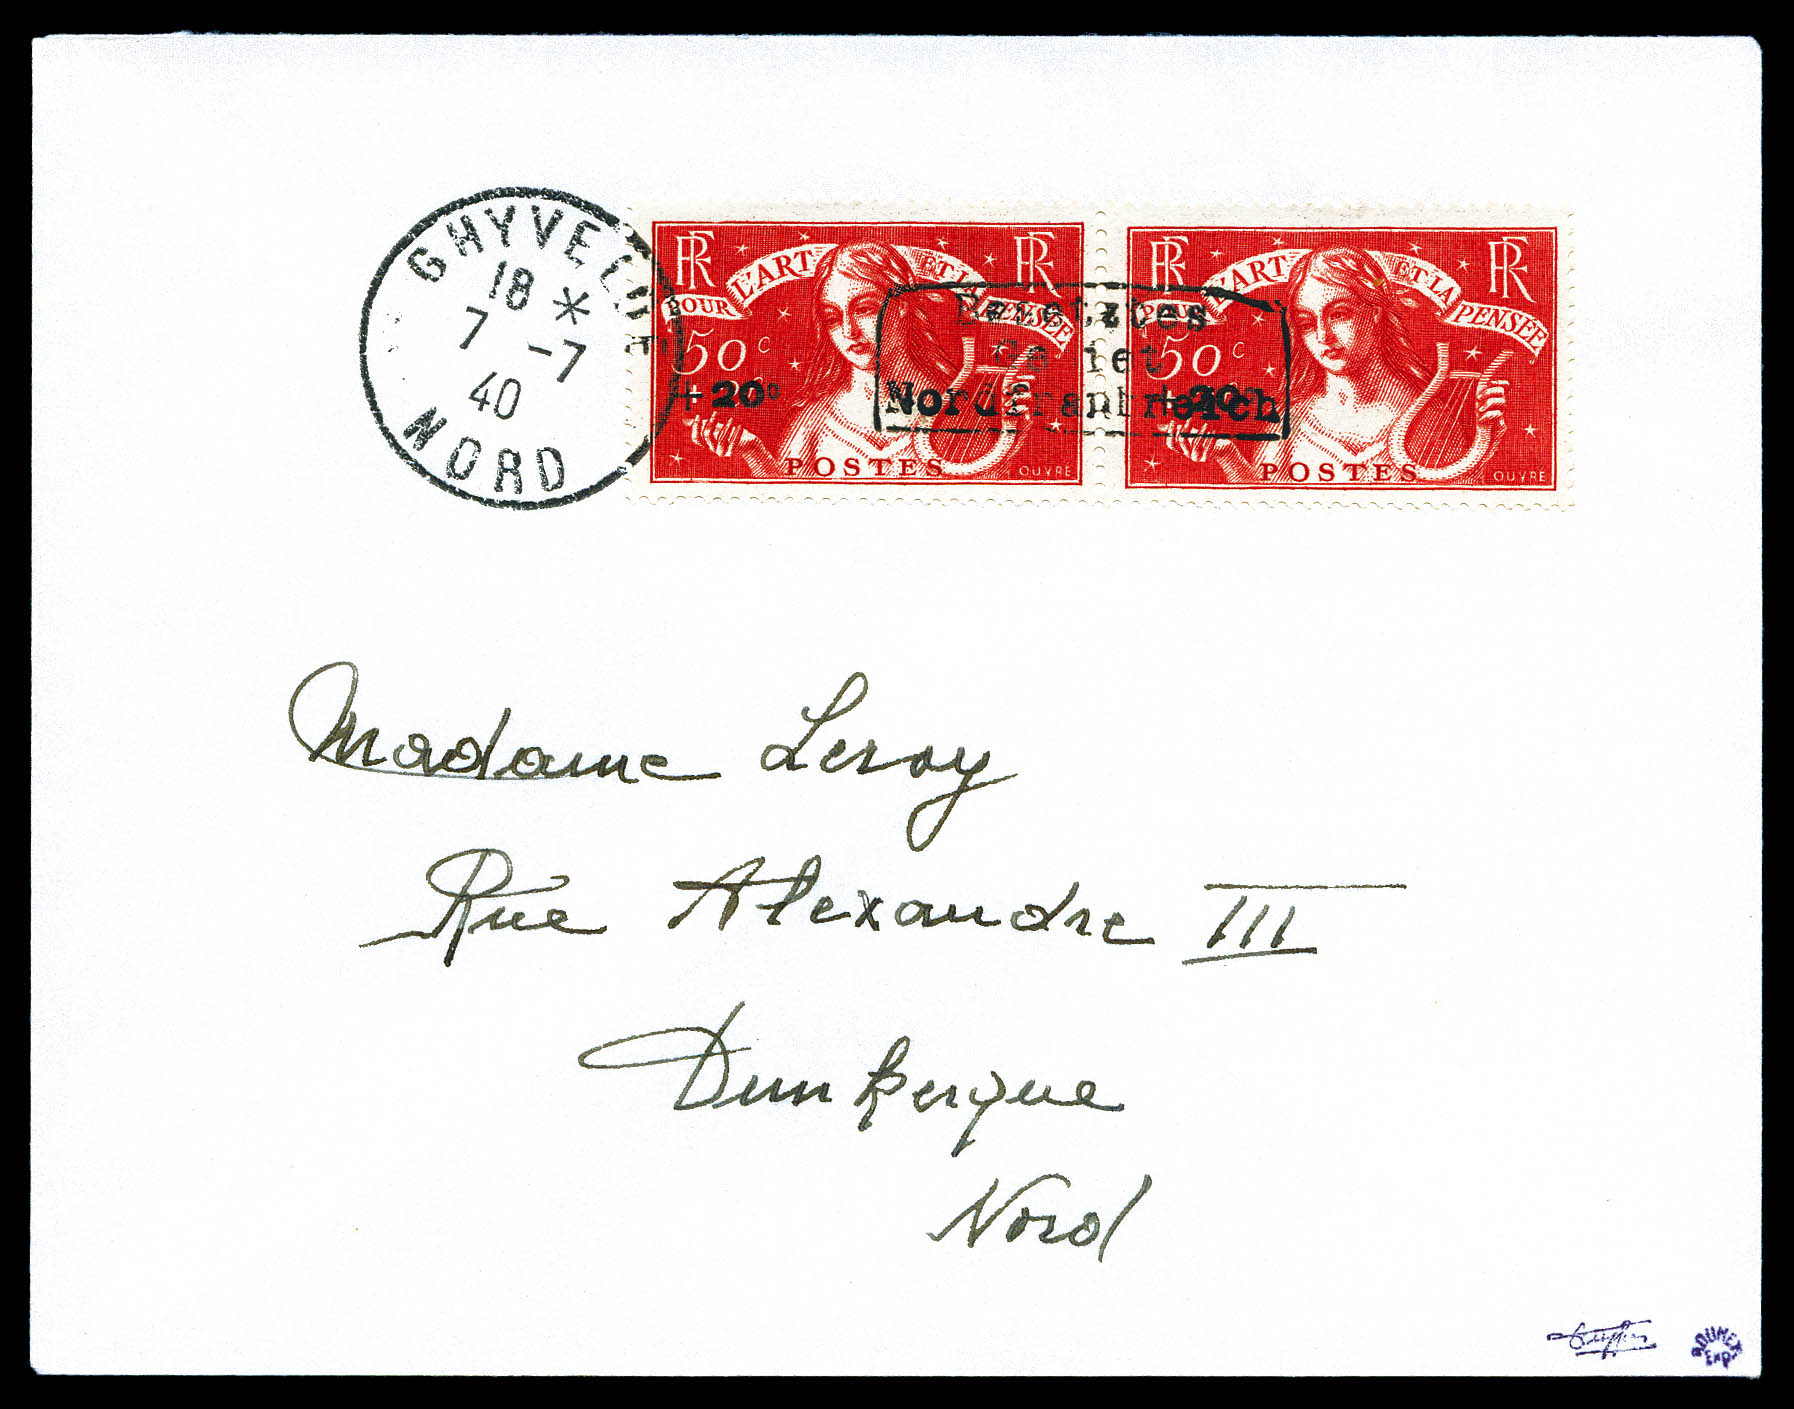 GHYVELDE
18 *
7 -7
40
NORD
RF RF
POUR L'ART ET LA PENSÉE
50c
+20c
POSTES
OUVRÉ
RF RF
POUR L'ART ET LA PENSÉE
50c
+20c
POSTES
OUVRÉ
Besetztes
Gebiet
Nordfrankreich
Madame Leroy
Rue Alexandre III
Dunkerque
Nord
ROUMET
EXP.